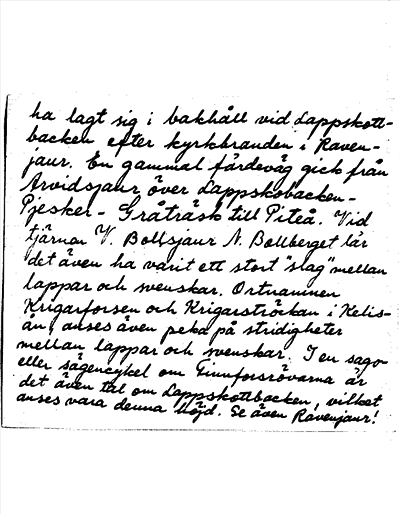 ha lagt sig i bakhåll vid Lappskott-
backen efter kyrkbranden i Raven-
jaur. En gammal färdeväg gick från
Arvidsjaur över Lappskobacken-
Pjesker - Gråträsk till Piteå. Vid
tjärnar V. Bollsjaur N. Bollberget lär
det även ha varit ett stort "slag" mellan
lappar och svenskar. Ortnamnen
Krigarforsen och Krigarströkan i Kelis-
ån, anses även peka på stridigheter
mellan lappar och svenskar. I en sago-
eller sägencykel om Finnforsrövarna är
det även tal om Lappskottbacken, vilket
anses vara denna höjd. Se även Ravenjaur!